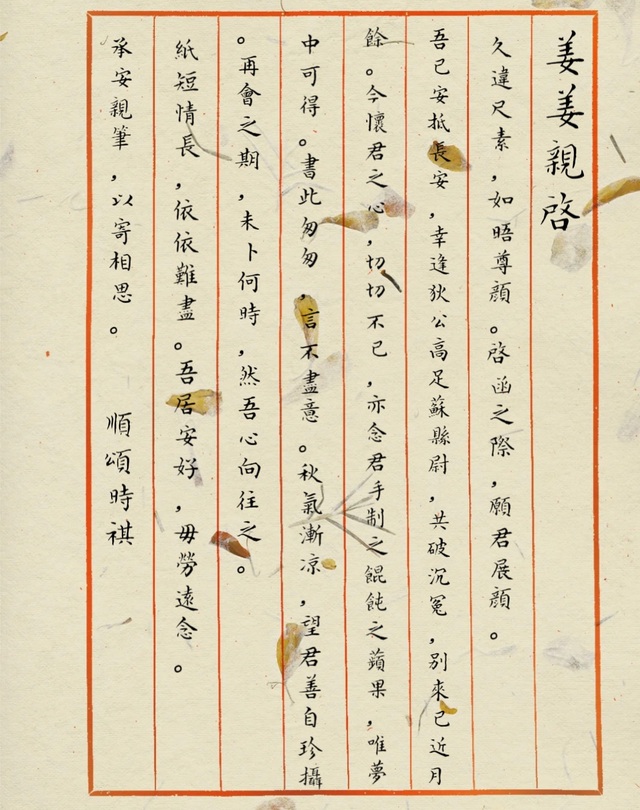 姜姜親啓
久違尺素，如晤尊顔。啓函之際，願君展顔。
吾已安抵長安，幸逢狄公高足蘇縣尉，共破沉冤，别來已近月
餘。今懷君之心，切切不已，亦念君手制之餛飩之蘋果，唯夢
中可得。書此匆匆，言不盡意。秋氣漸凉，望君善自珍攝
。再會之期，未卜何時，然吾心向往之。
紙短情長，依依難盡。吾居安好，毋勞遠念。
承安親筆，以寄相思。 順頌時祺